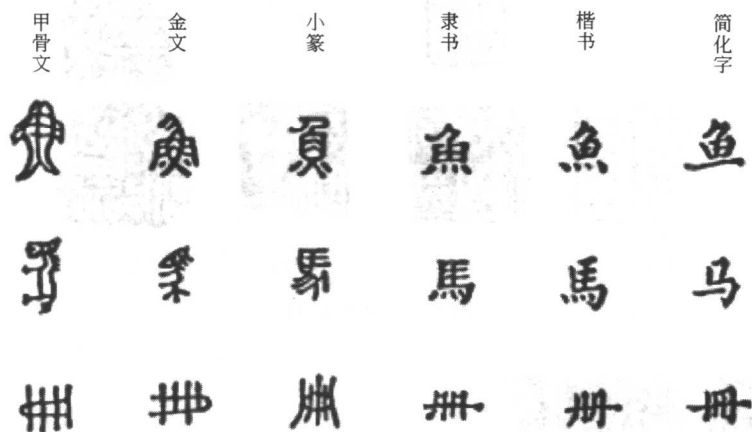 甲骨文 金文 小篆 隶书 楷书 简化字
魚 魚 魚 魚 魚 鱼
馬 馬 馬 馬 馬 马
冊 冊 冊 冊 册 冊